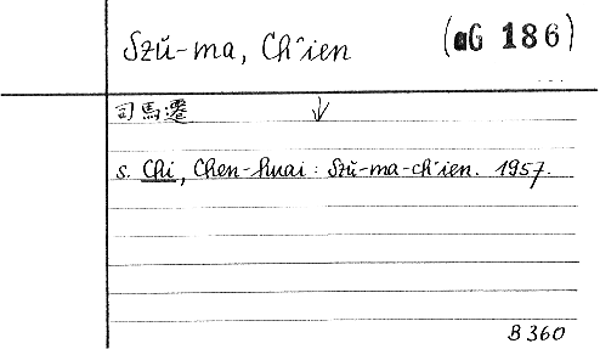 Szŭ-ma, Ch'ien (aG 186)
司馬遷
s. Chi, Chen-huai: Szŭ-ma-ch'ien. 1957.
B 360